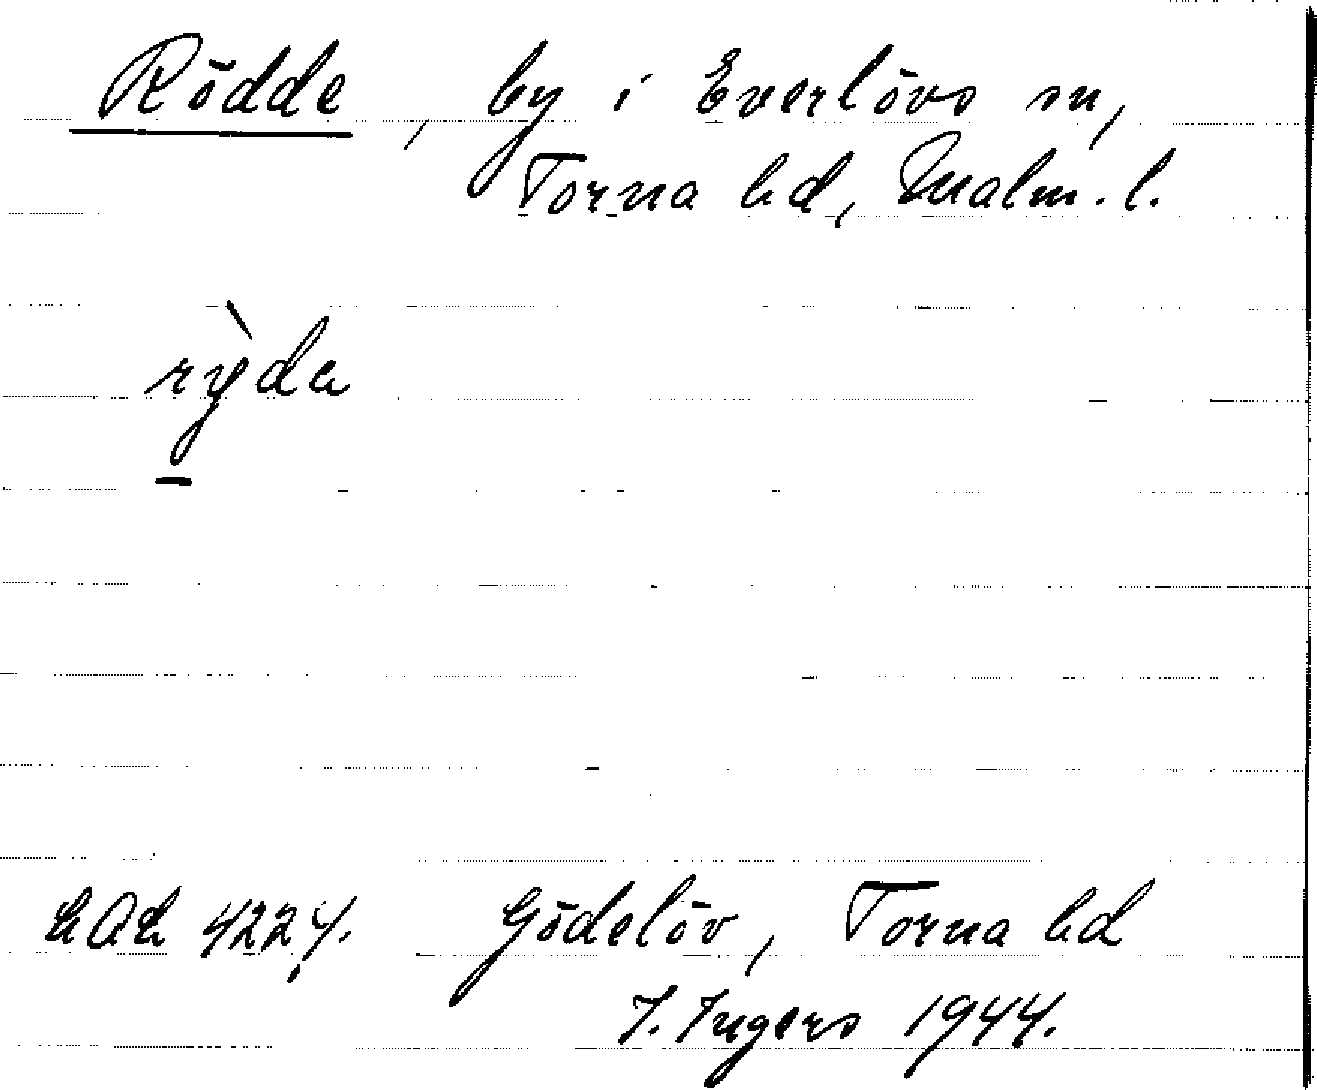 Rödde, by i Everlövs sn,
Torna hd, Malm. l.
rỳda
LAL 4224. Gödelöv, Torna hd
I. Ingers 1944.